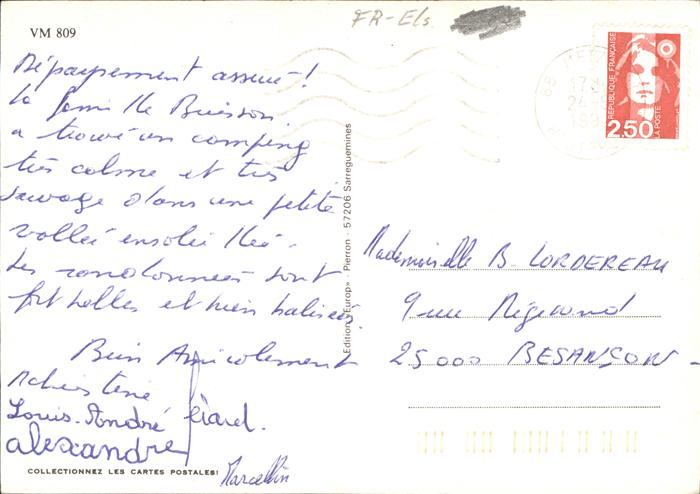 FR-Els
VM 809
Dépaysement assuré!
la famille Buisson
a trouvé un camping
très calme et très
sauvage dans une petite
vallée ensoleillée.
Les randonnées sont
fort belles et bien balisées.
Bien Amicalement
Louis-André
alexandre
Marcellin
COLLECTIONNEZ LES CARTES POSTALES!
Edition «Europ» - Pierron - 57206 Sarreguemines
RÉPUBLIQUE FRANÇAISE
2,50
LA POSTE
68
17
24
Mademoiselle B. LORDEREAU
9 rue Mégevand
25000 BESANÇON -